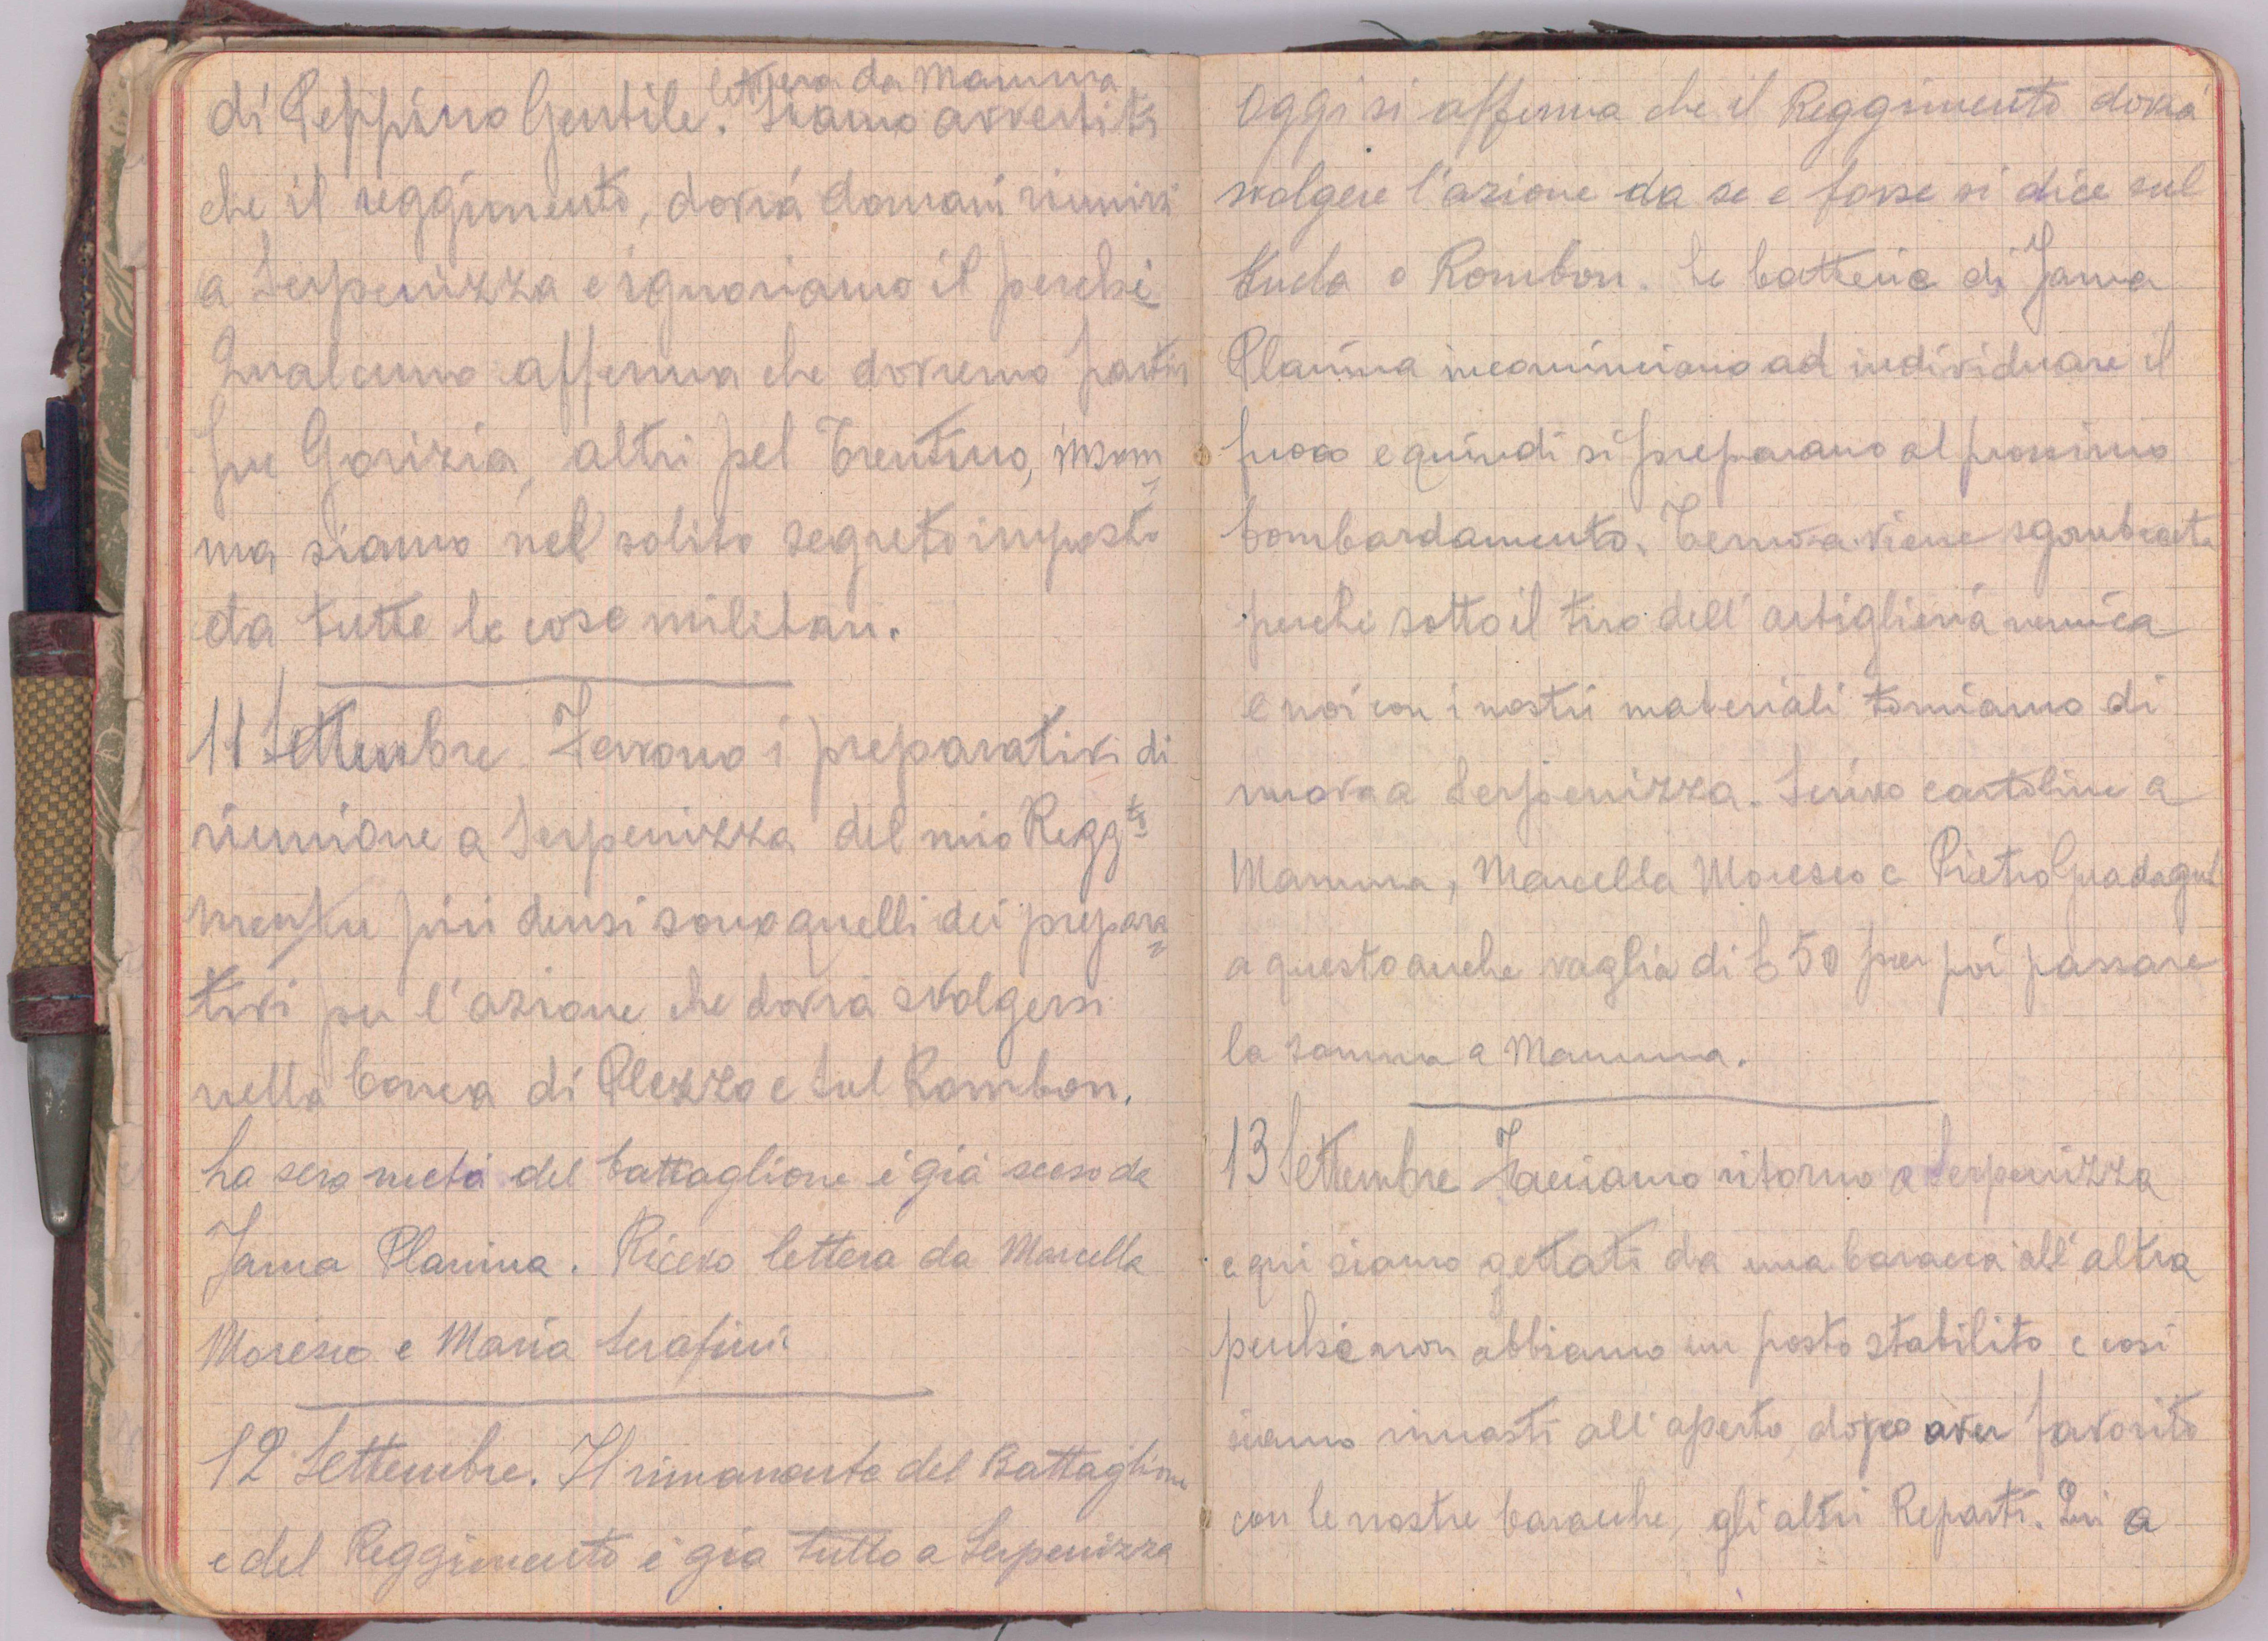 lettera da Mamma
di Peppino Gentile. Siamo avvertiti
che il reggimento, dovrà domani riunirsi
a Serpenizza e ignoriamo il perchè
Qualcuno afferma che dovremo partir
per Gorizia, altri pel Trentino, insom
ma siamo nel solito segreto imposto
da tutte le cose militari.
11 Settembre Fervono i preparativi di
riunione a Serpenizza del mio Reggto
mentre più densi sono quelli dei prepara
tivi per l'azione che dovrà svolgersi
nella Conca di Plezzo e sul Rombon.
La sera metà del battaglione è già sceso da
Jama Planina. Ricevo lettera da Marcella
Moresco e Maria Serafini
12 Settembre. Il rimanente del Battaglione
e del Reggimento è già tutto a Serpenizza
Oggi si afferma che il Reggimento dovrà
svolgere l'azione da se e forse si dice sul
Kucla o Rombon. Le batterie di Jama
Planina incominciano ad individuare il
fuoco e quindi si preparano al prossimo
bombardamento. Ternova viene sgombrata
perchè sotto il tiro dell'artiglieria nemica
e noi con i nostri materiali torniamo di
nuovo a Serpenizza. Scrivo cartoline a
Mamma, Marcella Moresco e Pietro
a questo anche vaglia di £ 50 per poi passare
la somma a Mamma.
13 Settembre Facciamo ritorno a Serpenizza
e qui siamo gettati da una baracca all'altra
perchè non abbiamo un posto stabilito e così
siamo rimasti all'aperto dopo aver favorito
con le nostre baracche, gli altri Reparti. Qui a